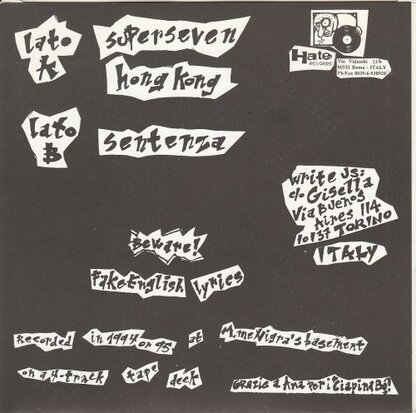 lato A
superseven
hong kong
lato B
sentenza
Hate
RECORDS
00152 Roma - ITALY
write us:
c/o Gisella
Via Buenos
Aires 114
10137 TORINO
ITALY
Beware!
fake English lyrics
Recorded in 1994 or 95 at M.me Nigra's basement
on a 4-track tape deck
GRAZIE a Ana per i